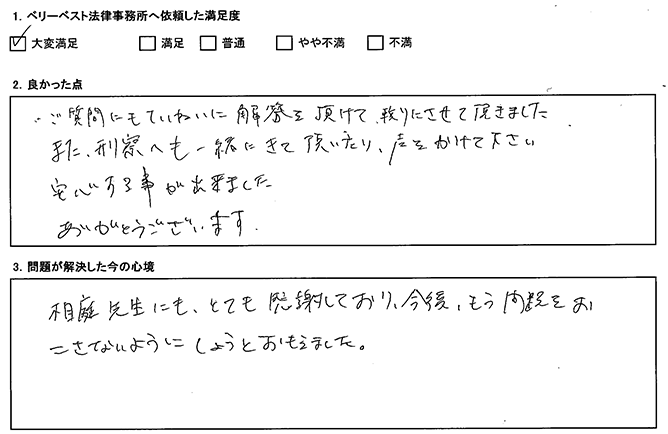 1. ベリーベスト法律事務所へ依頼した満足度
大変満足 満足 普通 やや不満 不満
2. 良かった点
・ご質問にもていねいに解答を頂けて、頼りにさせて頂きました
また、刑察へも一緒にきて頂いたり、声をかけて下さい
安心する事が出来ました
ありがとうございます.
3. 問題が解決した今の心境
相庭先生にも、とても感謝しており、今後、もう問題をお
こさないようにしようとおもえました。